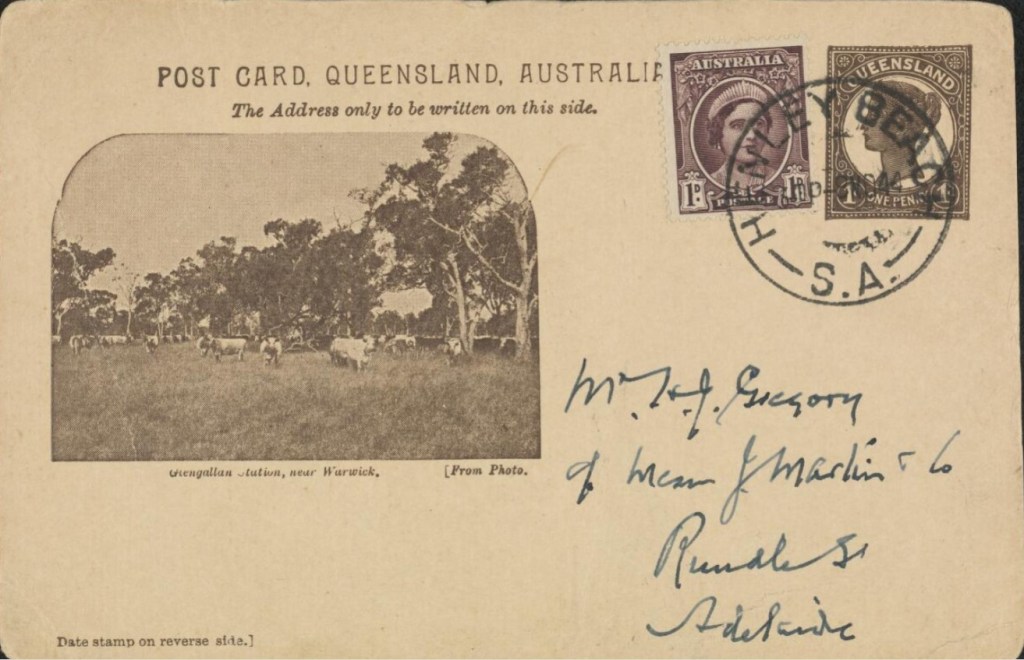 POST CARD, QUEENSLAND, AUSTRALIA
The Address only to be written on this side.
AUSTRALIA
1D. POSTAGE 1D.
QUEENSLAND
ONE PENNY
HENLEY BEACH
S.A.
Glengallan Station, near Warwick. [From Photo.
Mr. H. J. Gregory
of Messrs J Martin & Co
Rundle St
Adelaide
Date stamp on reverse side.]